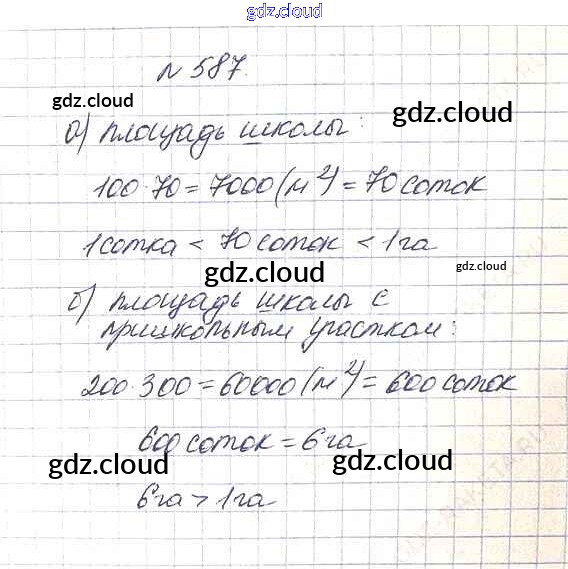 gdz.cloud
№ 587.
gdz.cloud
gdz.cloud
а) площадь школы:
100·70=7000(м²)=70 соток
1 сотка < 70 соток < 1 га
gdz.cloud
gdz.cloud
б) площадь школы с
пришкольным участком:
200·300=60000(м²)=600 соток
600 соток = 6 га
gdz.cloud
gdz.cloud
6 га > 1 га